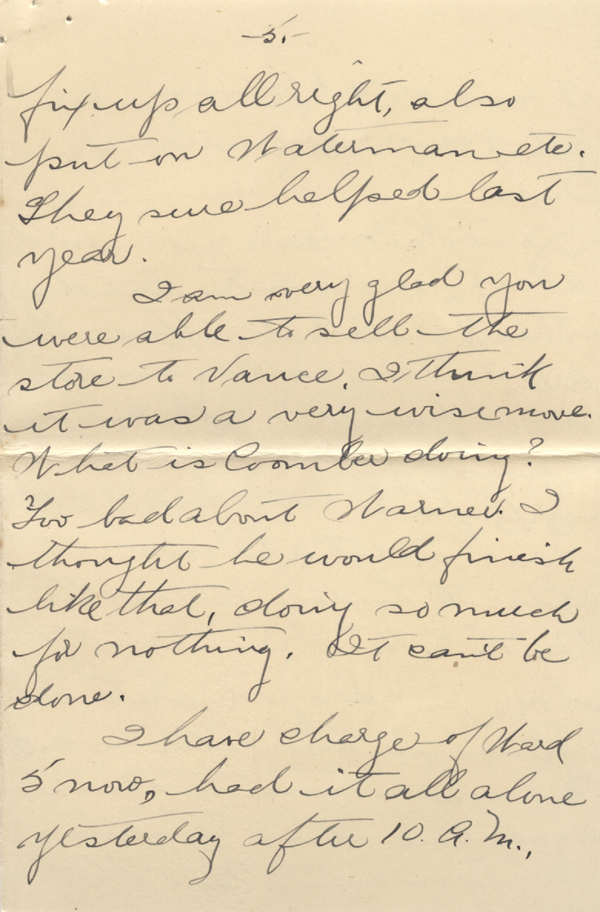 -5.-
fix up all right, also
put on Waterman etc.
They sure helped last
year.
I am very glad you
were able to sell the
store to Vance. I think
it was a very wise move.
What is Coomber doing?
Too bad about Warner. I
thought he would finish
like that, doing so much
for nothing. It can't be
done.
I have charge of Ward
5 now, had it all alone
yesterday after 10. A.M.,